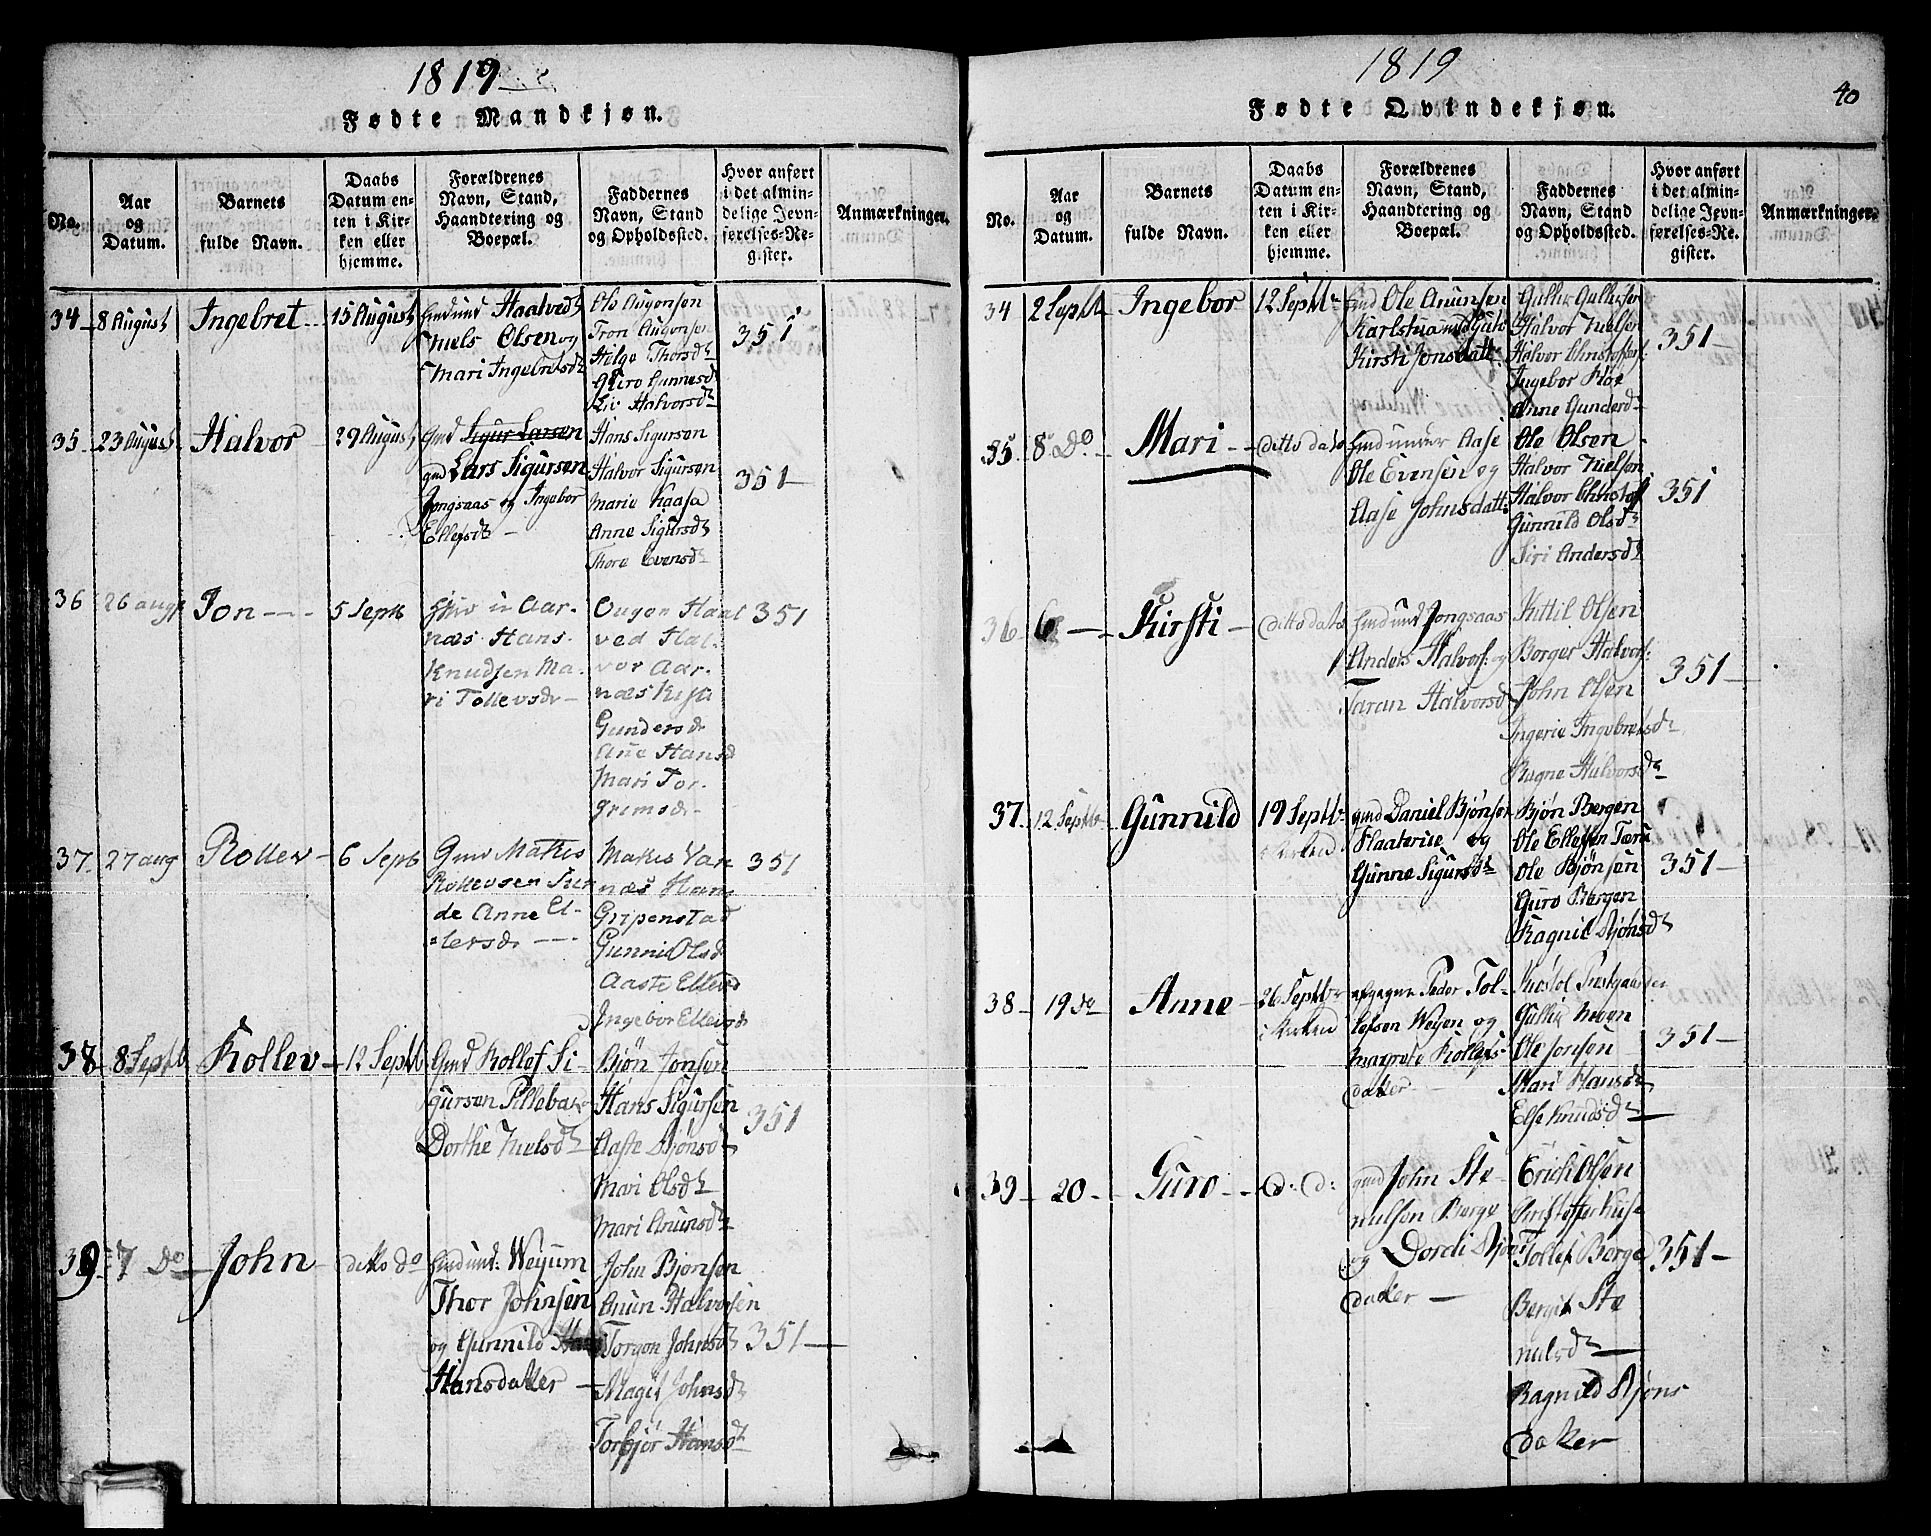 1819
Fødte Mandkjøn.
No.
Aar
og
Datum.
Barnets
fulde Navn.
Daabs
Datum en-
ten i Kir-
ken eller
hjemme.
Forældrenes
Navn, Stand,
Haandtering og
Boepæl.
Faddernes
Navn, Stand
og Opholdssted.
Hvor anført
i det almin-
delige Jevn-
førelses-Re-
gister.
Anmærkninger.
34 8 August Ingebret 15 August
Niels Olsen og
Mari Ingebretsd
Ole Augonsen
Tron Augonsen
Helge Thorsd
Guro Gunnesd
Liv Halvorsd
351
35 23 August Halvor 29 August
Gmd Sigur Larsen
gmd Lars Sigursen
Jongsaas og Ingebor
Ellefsd
Hans Sigursøn
Halvor Sigursøn
Marie Kaasa
Anne Sigursd
Thore Evensd
351
36 26 augt Jon 5 Septb
i Aar-
næs Hans
Knudsen Ma-
ri Tollevsdr
Ougon Haal
ved Hal-
vor Aar-
næs
Gundersdr
Anne Hansd
Mari Tor-
grimsdr
351
37 27 aug Rollev 6 Septb
Gmd Mathis
Rollevsen
de Anne El-
lersdr
Mathis Var
næs Hans
Gripenstad
Gunnil Olsd
Aaste Ellevd
Ingebor Ellevsdr
351
38 8 Septb Rollev 12 Septb
Gmd Rollef Si-
gursøn
Dorthe Nielsd
Bjøn Jonsen
Hans Sigursen
Aaste Bjønsd
Mari Olsd
Mari Anunsd
351
39 7 Do John ditto do
Weyum
Thor Johnsen
og Gunnild
Hansdatter
John Bjønsen
Anun Halvorsen
Torgon Johnsd
Magil Johnsd
Torbjør Hansd
351
1819
40
Fødte Qvindekjøn.
No.
Aar
og
Datum.
Barnets
fulde Navn.
Daabs
Datum en-
ten i Kir-
ken eller
hjemme.
Forældrenes
Navn, Stand,
Haandtering og
Boepæl.
Faddernes
Navn, Stand
og Opholdssted.
Hvor anført
i det almin-
delige Jevn-
førelses-Re-
gister.
Anmærkninger.
34 2 Septb Ingebor 12 Septb
Gmd Ole Anunsen
Kirsti Jonsdatt
Gullik Gulliksen
Halvor Nielsen
Halvor Christoffers:
Ingebor Moe
Anne Gunderd
351
35 8 Do Mari ditto dato
Gmd under Aase
Ole Evensen og
Aase Johnsdatt
Ole Olsen
Halvor Nielsøn
Halvor Christof
Gunnild Olsd
Siri Andersd
351
36 6 Kirsti ditto dato
Gmd und Jongsaas
Anders Halvors: og
Taran Halvorsd
Kittil Olsen
Borger Halvors:
John Olsen
Ingerie Ingebretsd
Bagne Halvorsd
351
37 12 Septb Gunnild 19 Septb
i Kirken
gmd Daniel Bjønsen
Flaaterue og
Gunne Sigursd
Bjøn Bergen
Ole Ellefsen
Ole Bjønsen
Guro Bergen
Ragnil Bjønsd
351
38 19 do Anne 26 Septb
i Kirken
Peder Tol-
lefsøn Weyen og
Margrete Rollefs-
datter
Gullik Hegen
Ole Jonsen
Mari Hansd
Else Knudsd
351
39 20 Guro d: d:
gmd John Ste-
nulsen Berge
og Dordi Bjøns
datter
Erich Olsen
Christoffer
Tollef Berge
Bergit Ste
nulsd
Ragnild Bjøns
datter
351